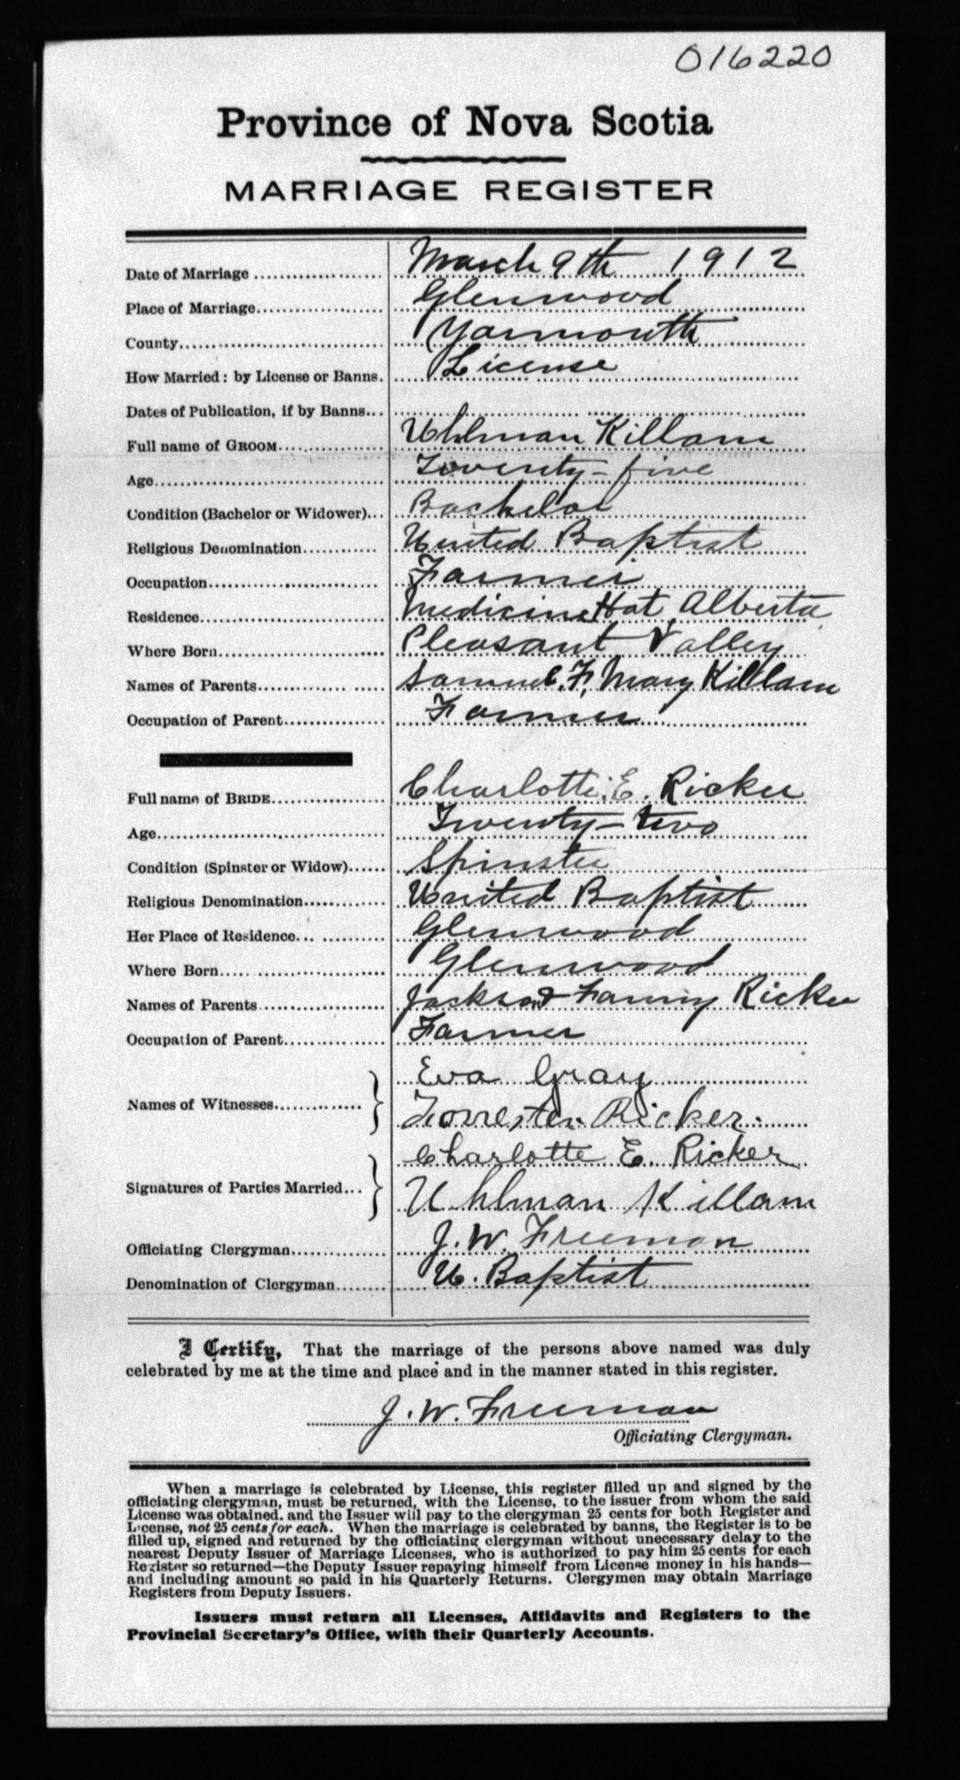 016220
Province of Nova Scotia
MARRIAGE REGISTER
Date of Marriage March 9th 1912
Place of Marriage Glenwood
County Yarmouth
How Married: by License or Banns. License
Dates of Publication, if by Banns
Full name of GROOM Uhlman Killam
Age Twenty-five
Condition (Bachelor or Widower) Bachelor
Religious Denomination United Baptist
Occupation Farmer
Residence Medicine Hat, Alberta
Where Born Pleasant Valley
Names of Parents Samuel F, Mary Killam
Occupation of Parent Farmer
Full name of BRIDE Charlotte E. Ricker
Age Twenty-two
Condition (Spinster or Widow) Spinster
Religious Denomination United Baptist
Her Place of Residence Glenwood
Where Born Glenwood
Names of Parents Jackson & Fanny Ricker
Occupation of Parent Farmer
Names of Witnesses Eva Gray
Forrester Ricker.
Signatures of Parties Married Charlotte E. Ricker
Uhlman Killam
Officiating Clergyman J. W. Freeman
Denomination of Clergyman U. Baptist
I Certify, That the marriage of the persons above named was duly
celebrated by me at the time and place and in the manner stated in this register.
J. W. Freeman
Officiating Clergyman.
When a marriage is celebrated by License, this register filled up and signed by the
officiating clergyman, must be returned, with the License, to the issuer from whom the said
License was obtained, and the Issuer will pay to the clergyman 25 cents for both Register and
License, not 25 cents for each. When the marriage is celebrated by banns, the Register is to be
filled up, signed and returned by the officiating clergyman without unnecessary delay to the
nearest Deputy Issuer of Marriage Licenses, who is authorized to pay him 25 cents for each
Register so returned—the Deputy Issuer repaying himself from License money in his hands—
and including amount so paid in his Quarterly Returns. Clergymen may obtain Marriage
Registers from Deputy Issuers.
Issuers must return all Licenses, Affidavits and Registers to the
Provincial Secretary's Office, with their Quarterly Accounts.